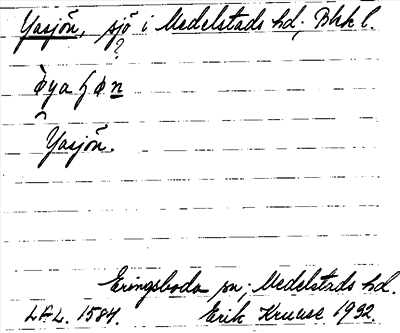 Yasjön, sjö i Medelstads hd; Blek l.
?
Yasjön.
Eringsboda sn; Medelstads hd.
L.A.L. 1584. Erik Kruuse 1932.